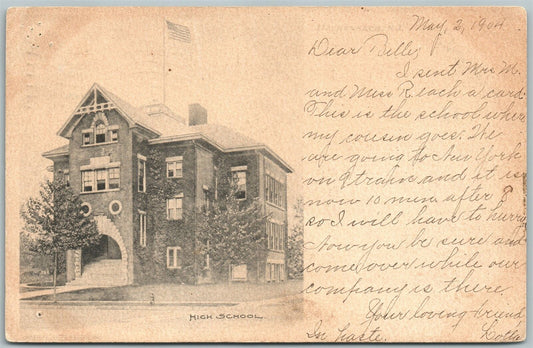 May, 2, 1904
Dear Billy
I sent Mrs M.
and Miss R each a card.
This is the school where
my cousin goes. The
are going to New York
on 9 train and it is
now 10 min after 8
so I will have to hurry
Now you be sure and
come over while our
company is there
Your loving friend
In haste. Lotta
HIGH SCHOOL.